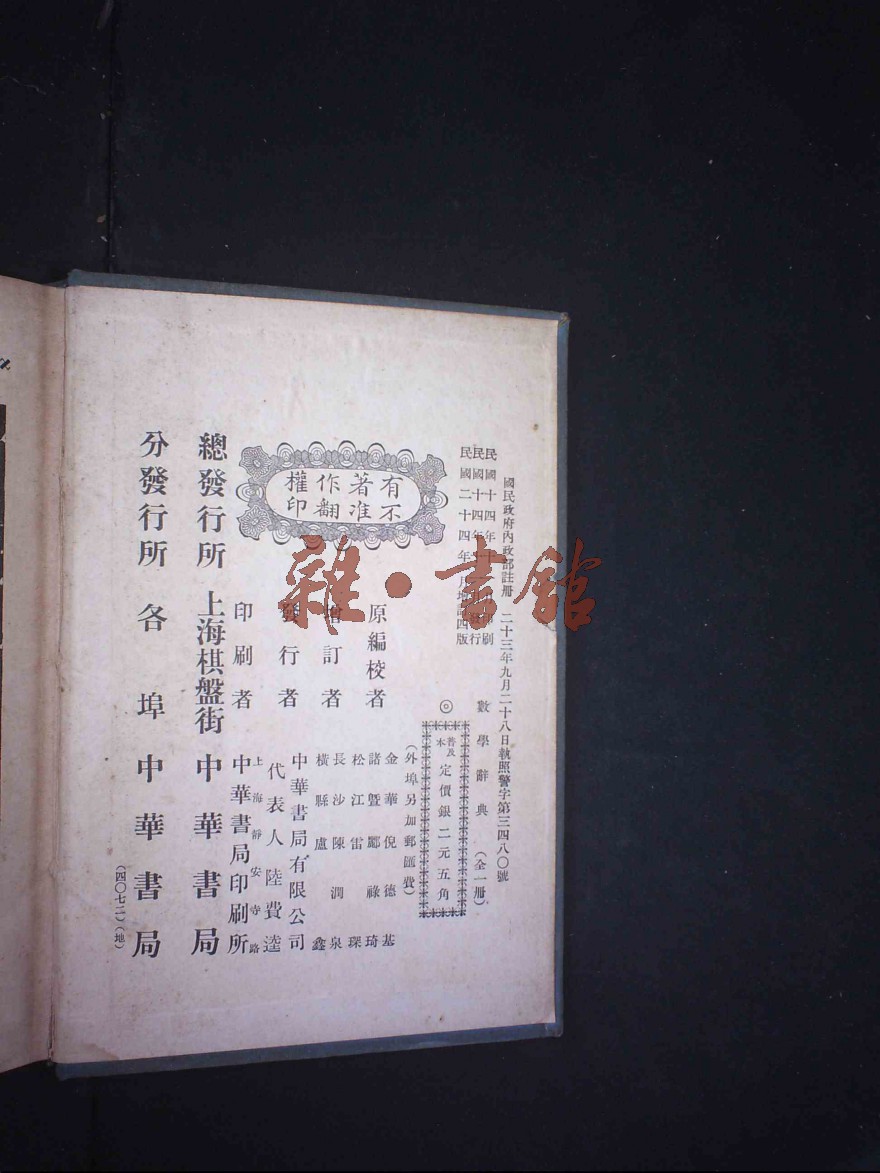 國民政府內政部註册 二十三年九月二十八日執照警字第三四八〇號
民國十四年 印刷
民國十四年 行
民國二十四年 月 四版
數學辭典(全一册)
◎普及本 定價銀二元五角
(外埠另加郵匯費)
原編校者
金華倪德基
諸暨酈祿琦
松江雷琛
訂者
長沙陳潤泉
橫縣盧鑫
發行者
中華書局有限公司
代表人陸費逵
印刷者
上海靜安寺路
中華書局印刷所
有著作權
不准翻印
總發行所 上海棋盤街 中華書局
分發行所 各埠 中華書局
(四〇七二)(地)
雜·書館